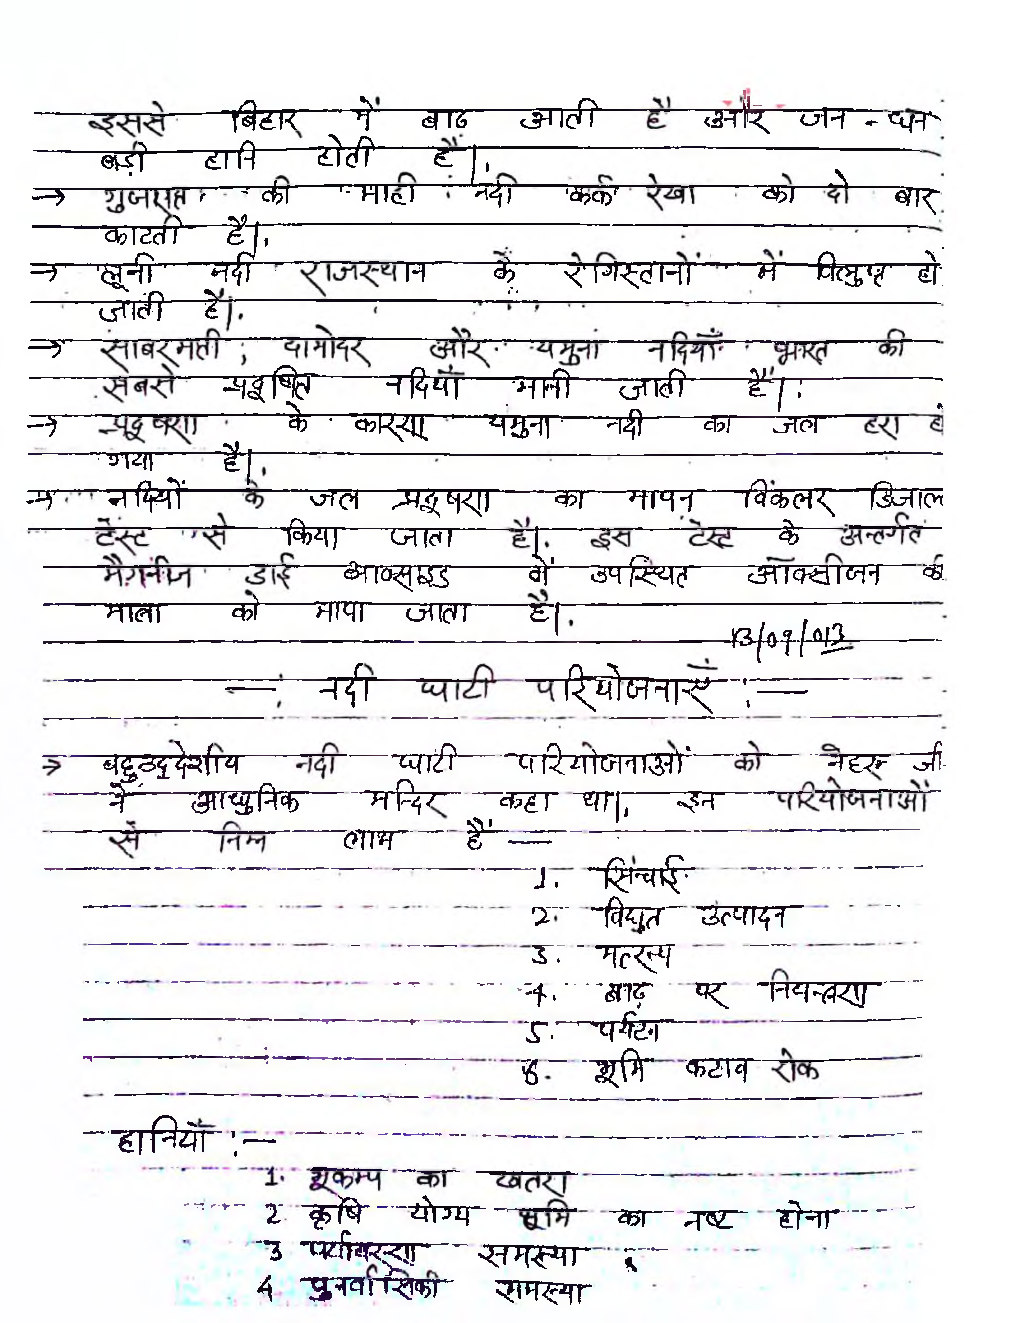 इससे बिहार में बाढ आती है और जन - धन
बड़ी हानि होती है।
→ गुजरात की माही नदी कर्क रेखा को दो बार
काटती है।
→ लूनी नदी राजस्थान के रेगिस्तानों में विलुप्त हो
जाती है।
→ साबरमती, दामोदर और यमुना नदियाँ भारत की
सबसे प्रदूषित नदियाँ मानी जाती है।
→ प्रदूषण के कारण यमुना नदी का जल हरा हो
गया है।
→ नदियों के जल प्रदूषण का मापन विंकलर डिजाल
टेस्ट से किया जाता है। इस टेस्ट के अन्तर्गत
मैगनीज डाई आक्साइड में उपस्थित ऑक्सीजन की
मात्रा को मापा जाता है।
13/09/013
—: नदी घाटी परियोजनाएँ :—
→ बहुउद्देशीय नदी घाटी परियोजनाओं को नेहरू जी
ने आधुनिक मन्दिर कहा था। इन परियोजनाओं
से निम्न लाभ हैं —
1. सिंचाई
2. विद्युत उत्पादन
3. मत्स्य
4. बाढ़ पर नियन्त्रण
5. पर्यटन
6. भूमि कटाव रोक
हानियाँ :—
1. भूकम्प का खतरा
2 कृषि योग्य भूमि का नष्ट होना
3 पर्यावरण समस्या
4 पुनर्वासिकी समस्या